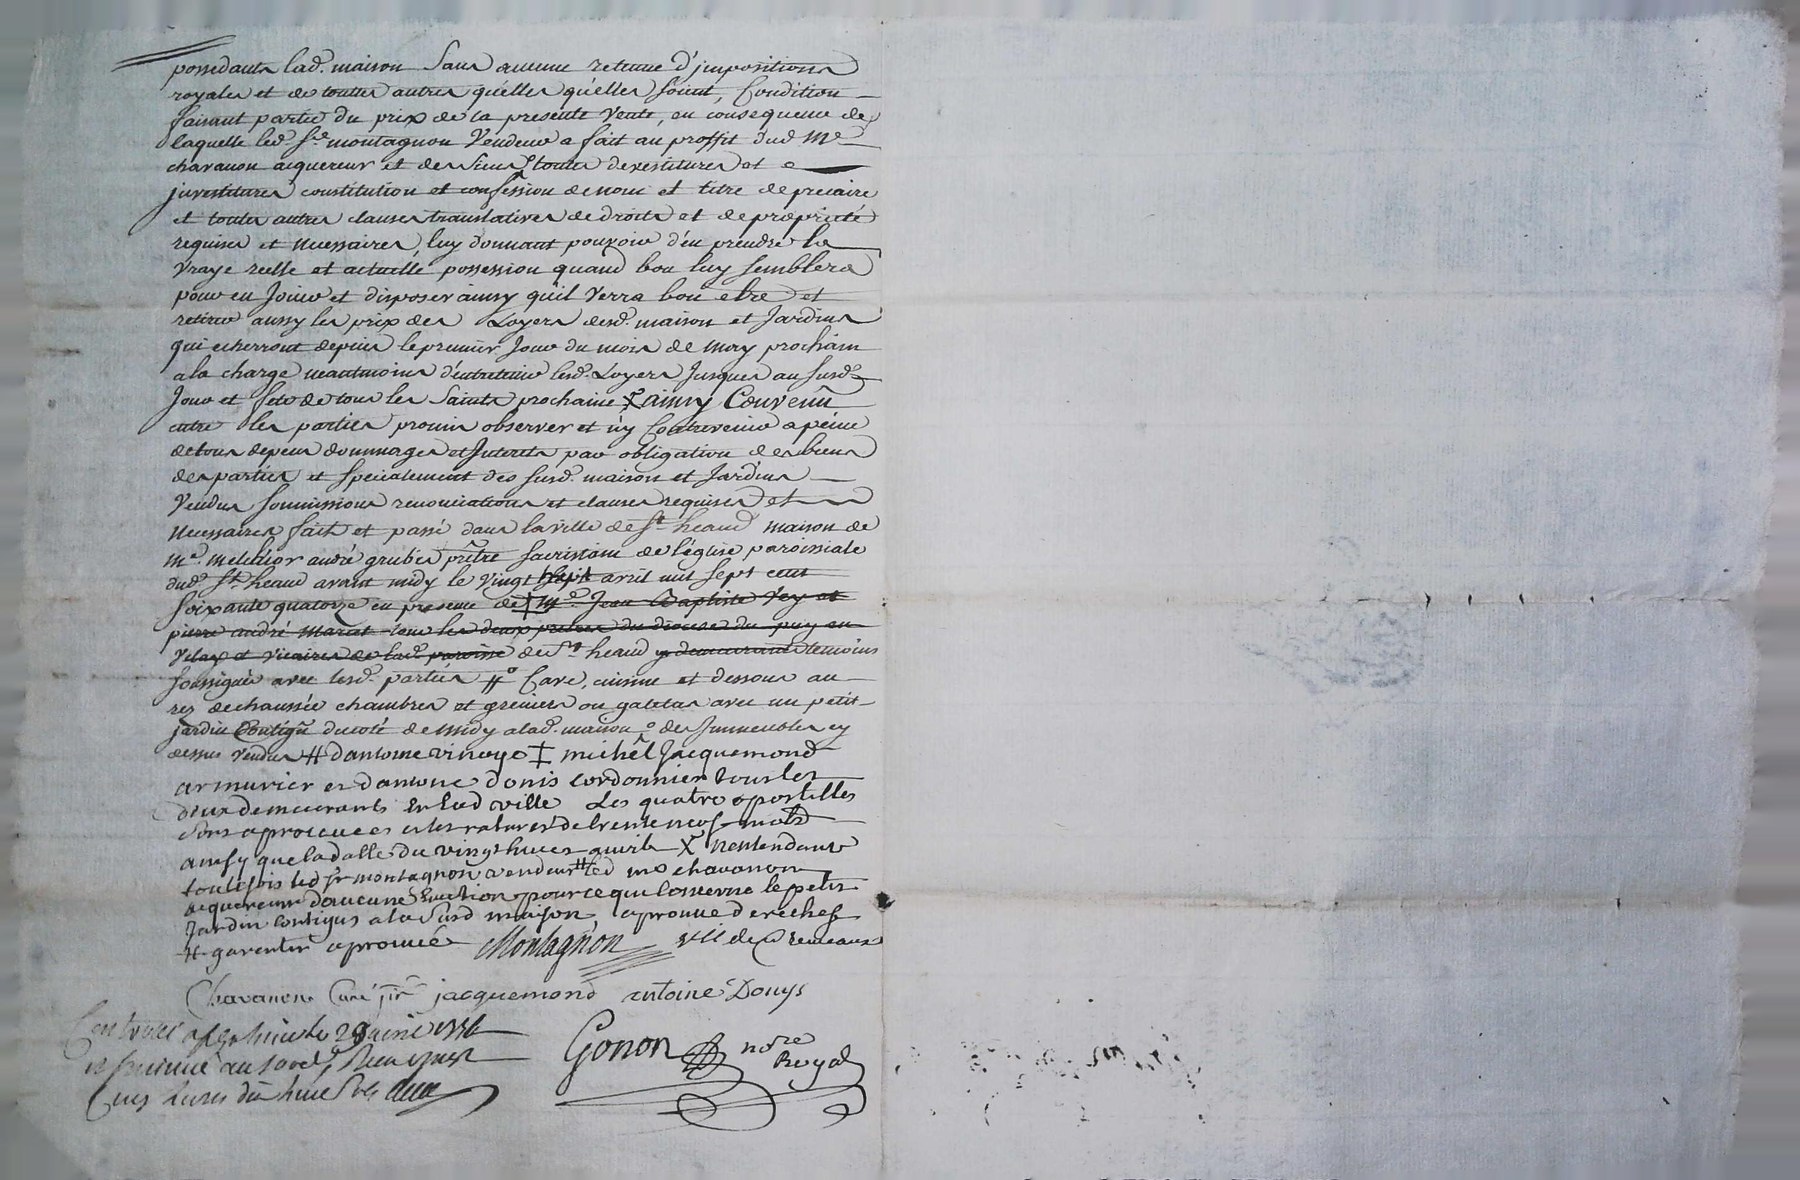 possedants lad. maison sans aucune retenue d'jmpositions
royales et de toutes autres qu'elles qu'elles soient, Condition
faisant partie du prix de la presente vente, en consequence de
laquelle led. Sr. montagnon Vendeur a fait au proffit dud Me
chavanon acquereur et des siens toutes devestitures et
jnvestitures constitution et confession de nom et titre de precaire
et toutes autres clauses translatives de droits et de proprieté
requises et necessaires, luy donnant pouvoir d'en prendre la
vraye reelle et actuelle possession quand bon luy semblera
pour en jouir et disposer ainsy qu'il verra bon etre et
retirer aussy les prix des Loyers desd. maison et Jardins
qui echerront depuis le premier Jour du mois de may prochain
a la charge neantmoins d'entretenir lesd. Loyers Jusques au susd.
Jour et fete de tous les Saints prochaine X ainsy Convenu
entre les parties promis observer et n'y Contrevenir a peine
de tous depens dommages et Jnterets par obligation des biens
des parties et specialement des susd. maison et Jardins
Vendus soumissions renonciations et clauses requises et
necessaires fait et passé dans la ville de St. heand maison de
me. melchior andré grubis prêtre sacristain de l'église paroissiale
dud. St. heand avant midy le vingt huit avril mil sept cent
soixante quatorze en presence de ‡ me. Jean Baptiste Vey et
pierre andré Marcet tous les deux pretres du diocese du puy en
velay et vicaires de lad. paroisse de St. heand y demeurants temoins
soussignés avec lesd. parties # Cave, cuisine et dessous au
rez de chaussée chambres et greniers ou galetas avec un petit
jardin Contigu du coté de midy a lad. maison des Jmmeubles cy
dessus vendus # d'antoine vinoye ‡ michel Jacquemond
armurier et dantoine donis cordonnier tous les
deux demeurants en lad ville Les quatre apostilles
sont aprouvées et les ratures de trente neuf mots
ainsy que la datte du vingt huit avril X nentendant
toutefois led sr montagnon vendeur # led me chavanon
acquereur daucune eviction pour ce qui concerne le petit
Jardin contigus a la susd maison, aprouvé derechef
# garentir aprouvé Montagnon
Chavanon Curé jacquemond antoine Donys
Controllé a St heand le 28 avril 1774
Gonon nore
Royal